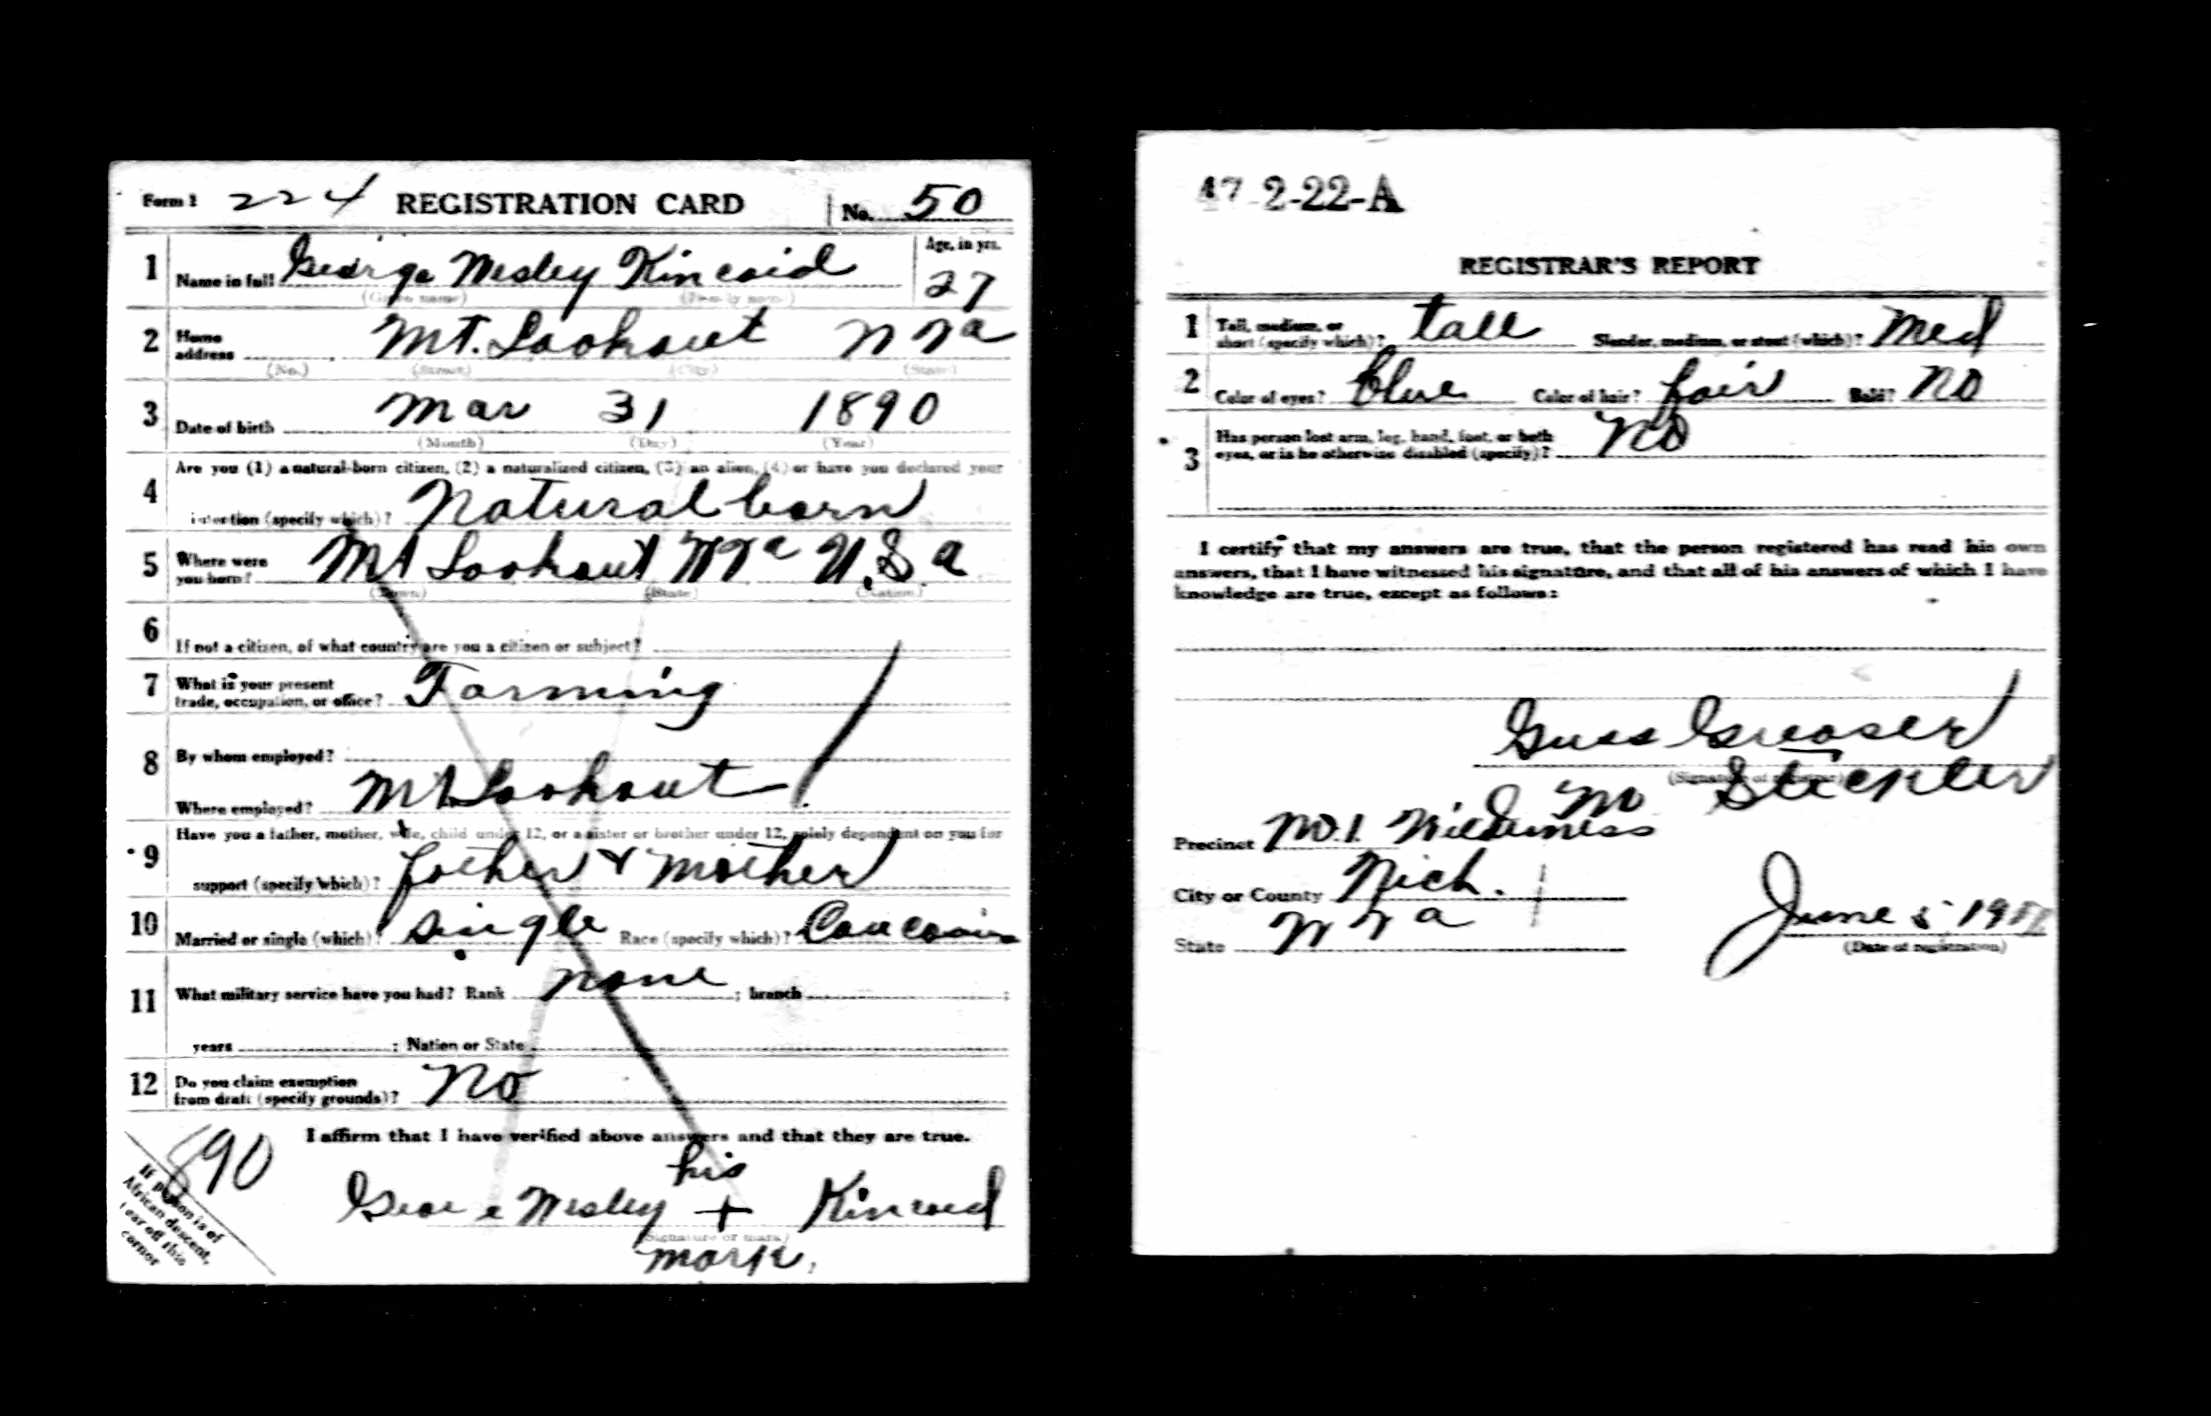 Form 1 224 REGISTRATION CARD No. 50
1 Name in full George Wesley Kincaid Age, in yrs. 27
(Given name) (Family name)
2 Home address Mt. Lookout W Va
(No.) (Street) (City) (State)
3 Date of birth Mar 31 1890
(Month) (Day) (Year)
4 Are you (1) a natural-born citizen, (2) a naturalized citizen, (3) an alien, (4) or have you declared your
intention (specify which)? Natural born
5 Where were you born? Mt Lookout W Va U.S.a
(Town) (State) (Nation)
6 If not a citizen, of what country are you a citizen or subject?
7 What is your present trade, occupation, or office? Farming
8 By whom employed?
Where employed? Mt Lookout
9 Have you a father, mother, wife, child under 12, or a sister or brother under 12, solely dependent on you for
support (specify which)? father & mother
10 Married or single (which)? single Race (specify which)? Caucasian
11 What military service have you had? Rank none ; branch ;
years ; Nation or State
12 Do you claim exemption from draft (specify grounds)? No
I affirm that I have verified above answers and that they are true.
890
his
George Wesley + Kincaid
(Signature or mark)
mark.
If person is of
African descent,
tear off this
corner
47 2-22-A
REGISTRAR'S REPORT
1 Tall, medium, or short (specify which)? tall Slender, medium, or stout (which)? Med
2 Color of eyes? blue Color of hair? fair Bald? No
3 Has person lost arm, leg, hand, foot, or both eyes, or is he otherwise disabled (specify)? No
I certify that my answers are true, that the person registered has read his own
answers, that I have witnessed his signature, and that all of his answers of which I have
knowledge are true, except as follows:
Guss Greaser
(Signature of registrar)
M Stickler
Precinct No. 1 Wilderness
City or County Nich.
State W Va
June 5 1917
(Date of registration)